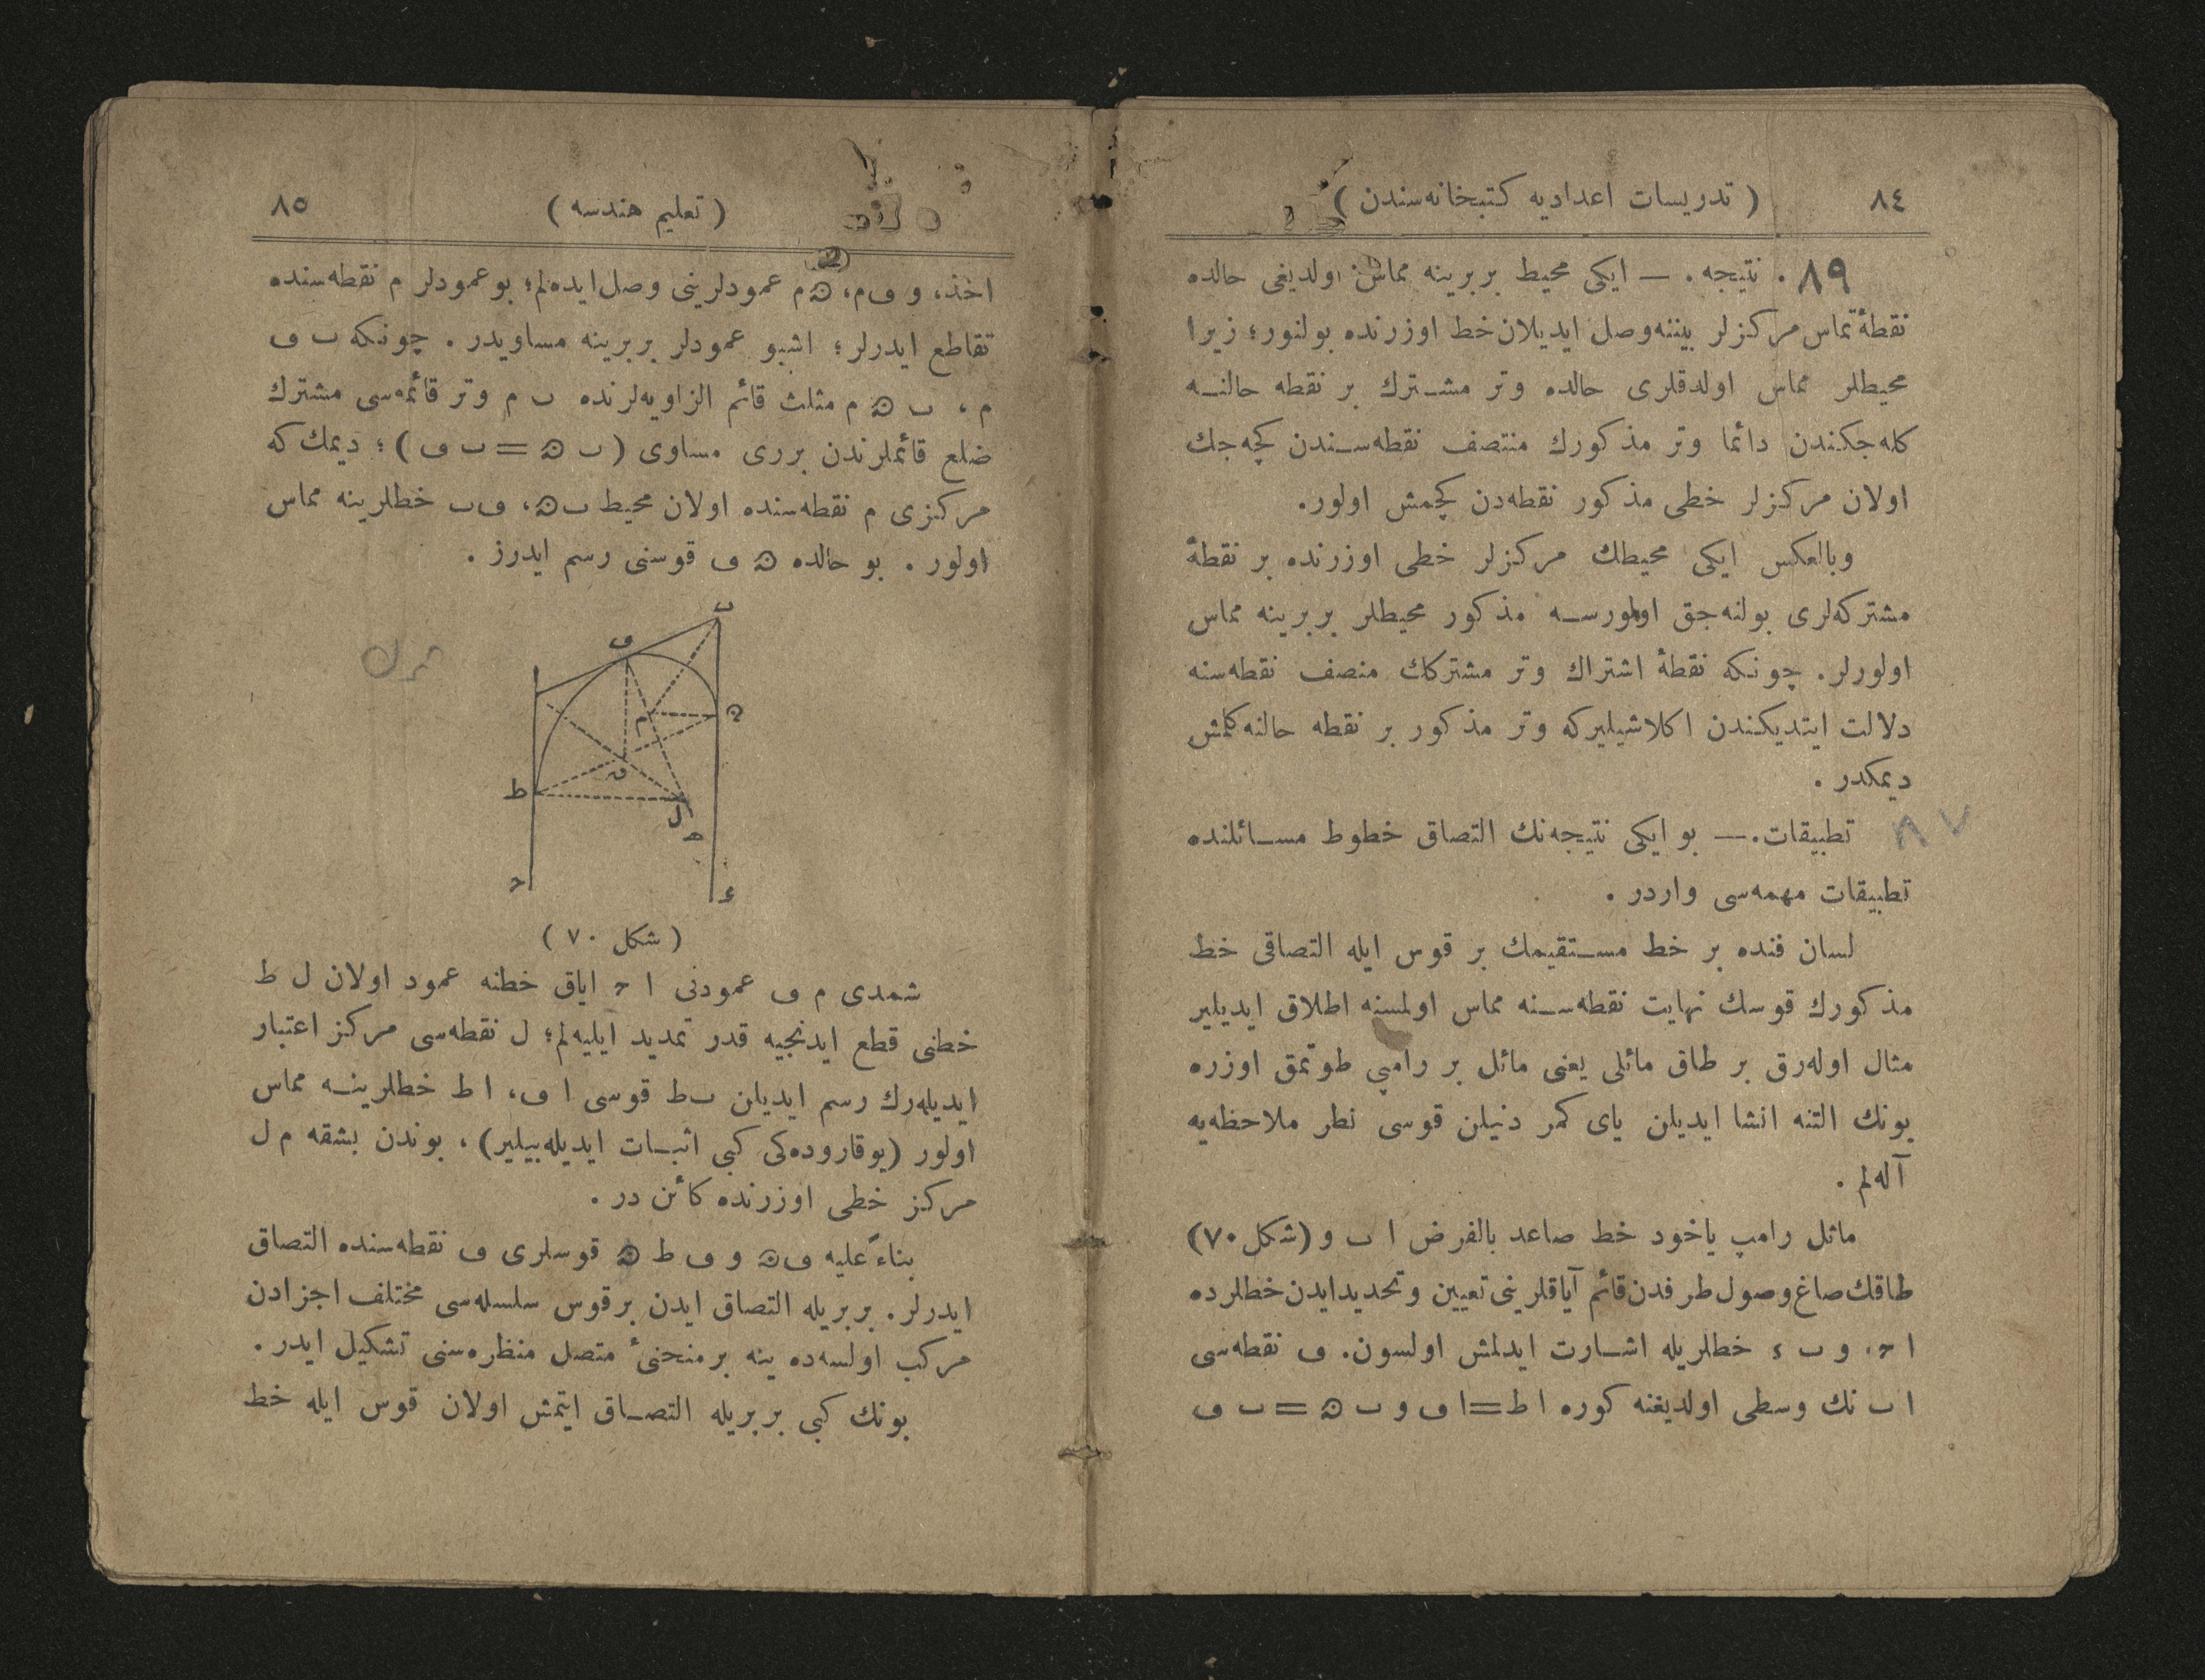 ٨٤
( تدریسات اعدادیه کتبخانه‌سندن )
٨٩ . نتیجه . — ایکی محیط بربرینه مماس اولدیغی حالده
نقطهٔ تماس مرکزلر بیننه وصل ایدیلان خط اوزرنده بولنور؛ زیرا
محیطلر مماس اولدقلری حالده وتر مشترك بر نقطه حالنه
کله‌جکندن دائما وتر مذکورك منتصف نقطه‌سندن کچه‌جك
اولان مرکزلر خطی مذکور نقطه‌دن کچمش اولور.
وبالعکس ایکی محیطك مرکزلر خطی اوزرنده بر نقطهٔ
مشترکه‌لری بولنه‌جق اولورسه مذکور محیطلر بربرینه مماس
اولورلر. چونکه نقطهٔ اشتراك وتر مشترکك منصف نقطه‌سنه
دلالت ایتدیکندن اکلاشیلیرکه وتر مذکور بر نقطه حالنه کلمش
دیمکدر .
تطبیقات. — بو ایکی نتیجه‌نك التصاق خطوط مسائلنده
٨٧
تطبیقات مهمه‌سی واردر .
لسان فنده بر خط مستقیمك بر قوس ایله التصاقی خط
مذکورك قوسك نهایت نقطه‌سنه مماس اولمسنه اطلاق ایدیلیر
مثال اوله‌رق بر طاق مائلی یعنی مائل بر رامپی طوتمق اوزره
بونك التنه انشا ایدیلن یای کمر دنیلن قوسی نظر ملاحظه‌یه
آله‌لم .
مائل رامپ یاخود خط صاعد بالفرض ا ب و (شکل ٧٠)
طاقك صاغ وصول طرفدن قائم آیاقلرینی تعیین وتحدید ایدن خطلرده
ا ح، و ب ء خطلریله اشارت ایدلمش اولسون. ف نقطه‌سی
ا ب نك وسطی اولدیغنه کوره ا ط = ا ف و ب ه = ب ف
( تعلیم هندسه )
٨٥
اخذ، و ف م، ه م عمودلرینی وصل ایده‌لم؛ بو عمودلر م نقطه‌سنده
تقاطع ایدرلر؛ اشبو عمودلر بربرینه مساویدر . چونکه ب ف
م ، ب ه م مثلث قائم الزاویه‌لرنده ب م وتر قائمه‌سی مشترك
ضلع قائملرندن برری مساوی (ب ه = ب ف) ؛ دیمك که
مرکزی م نقطه‌سنده اولان محیط ب ه، ف ب خطلرینه مماس
اولور . بو حالده ه ف قوسنی رسم ایدرز .
ب
ف
ه
م
ط
ل
ح
ء
( شکل ٧٠ )
شمدی م ف عمودنی ا ح ایاق خطنه عمود اولان ل ط
خطنی قطع ایدنجیه قدر تمدید ایلیه‌لم؛ ل نقطه‌سی مرکز اعتبار
ایدیله‌رك رسم ایدیلن ب ط قوسی ا ف، ا ط خطلرینه مماس
اولور (یوقاروده‌کی کبی اثبات ایدیله‌بیلیر) ، بوندن بشقه م ل
مرکز خطی اوزرنده کائن در .
بناءً علیه ف ه و ف ط ه قوسلری ف نقطه‌سنده التصاق
ایدرلر. بربریله التصاق ایدن برقوس سلسله‌سی مختلف اجزادن
مرکب اولسه‌ده ینه برمنحنیٔ متصل منظره‌سنی تشکیل ایدر .
بونك کبی بربریله التصاق ایتمش اولان قوس ایله خط